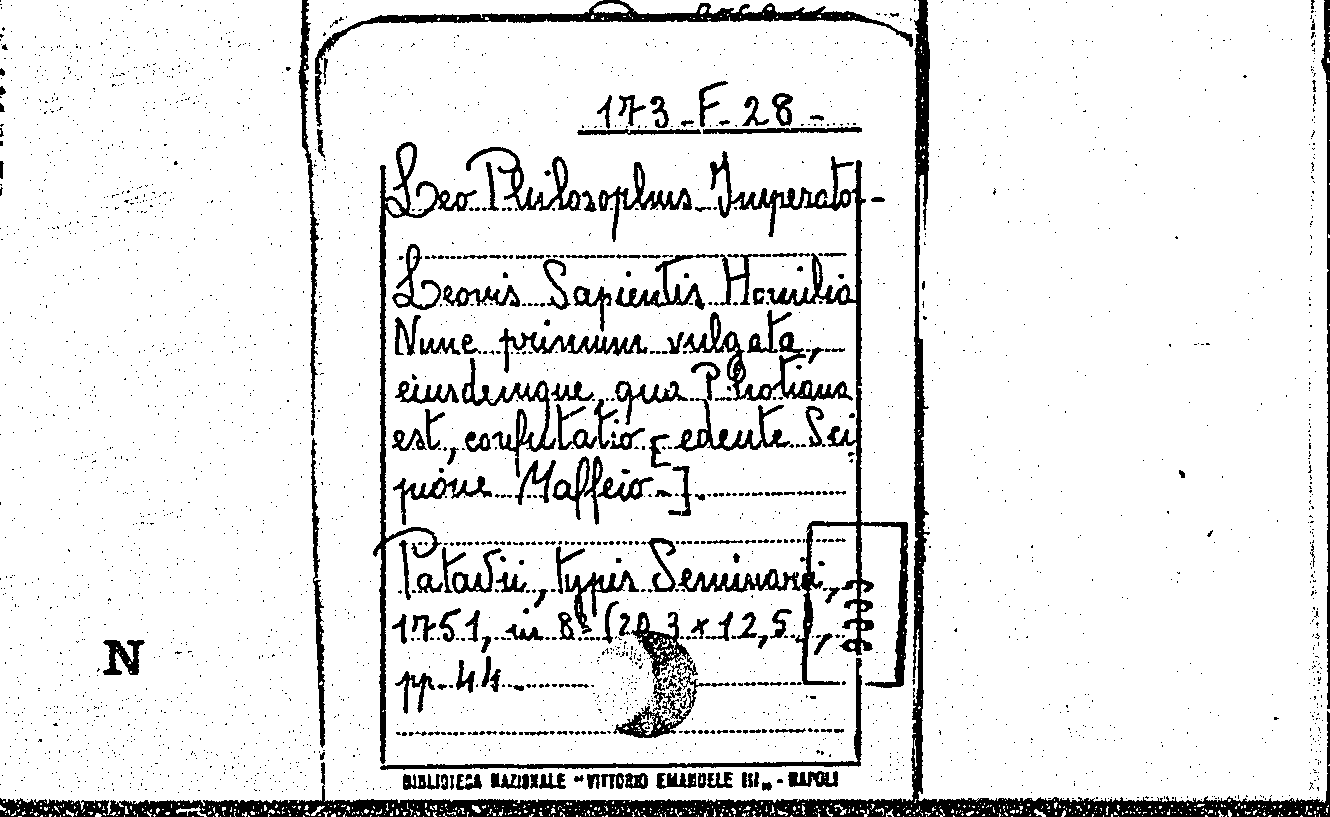 173-F-28-
Leo Philosophus Imperator-
Leonis Sapientis Homilia
Nunc primum vulgata,
eiusdemque, qua Photiana
est, confutatio [edente Sci
pione Maffeio-].
Patavii, typis Seminarii,
1751, in 8º (20,3 x 12,5),
pp. 44.
N
BIBLIOTECA NAZIONALE "VITTORIO EMANUELE III„ - NAPOLI